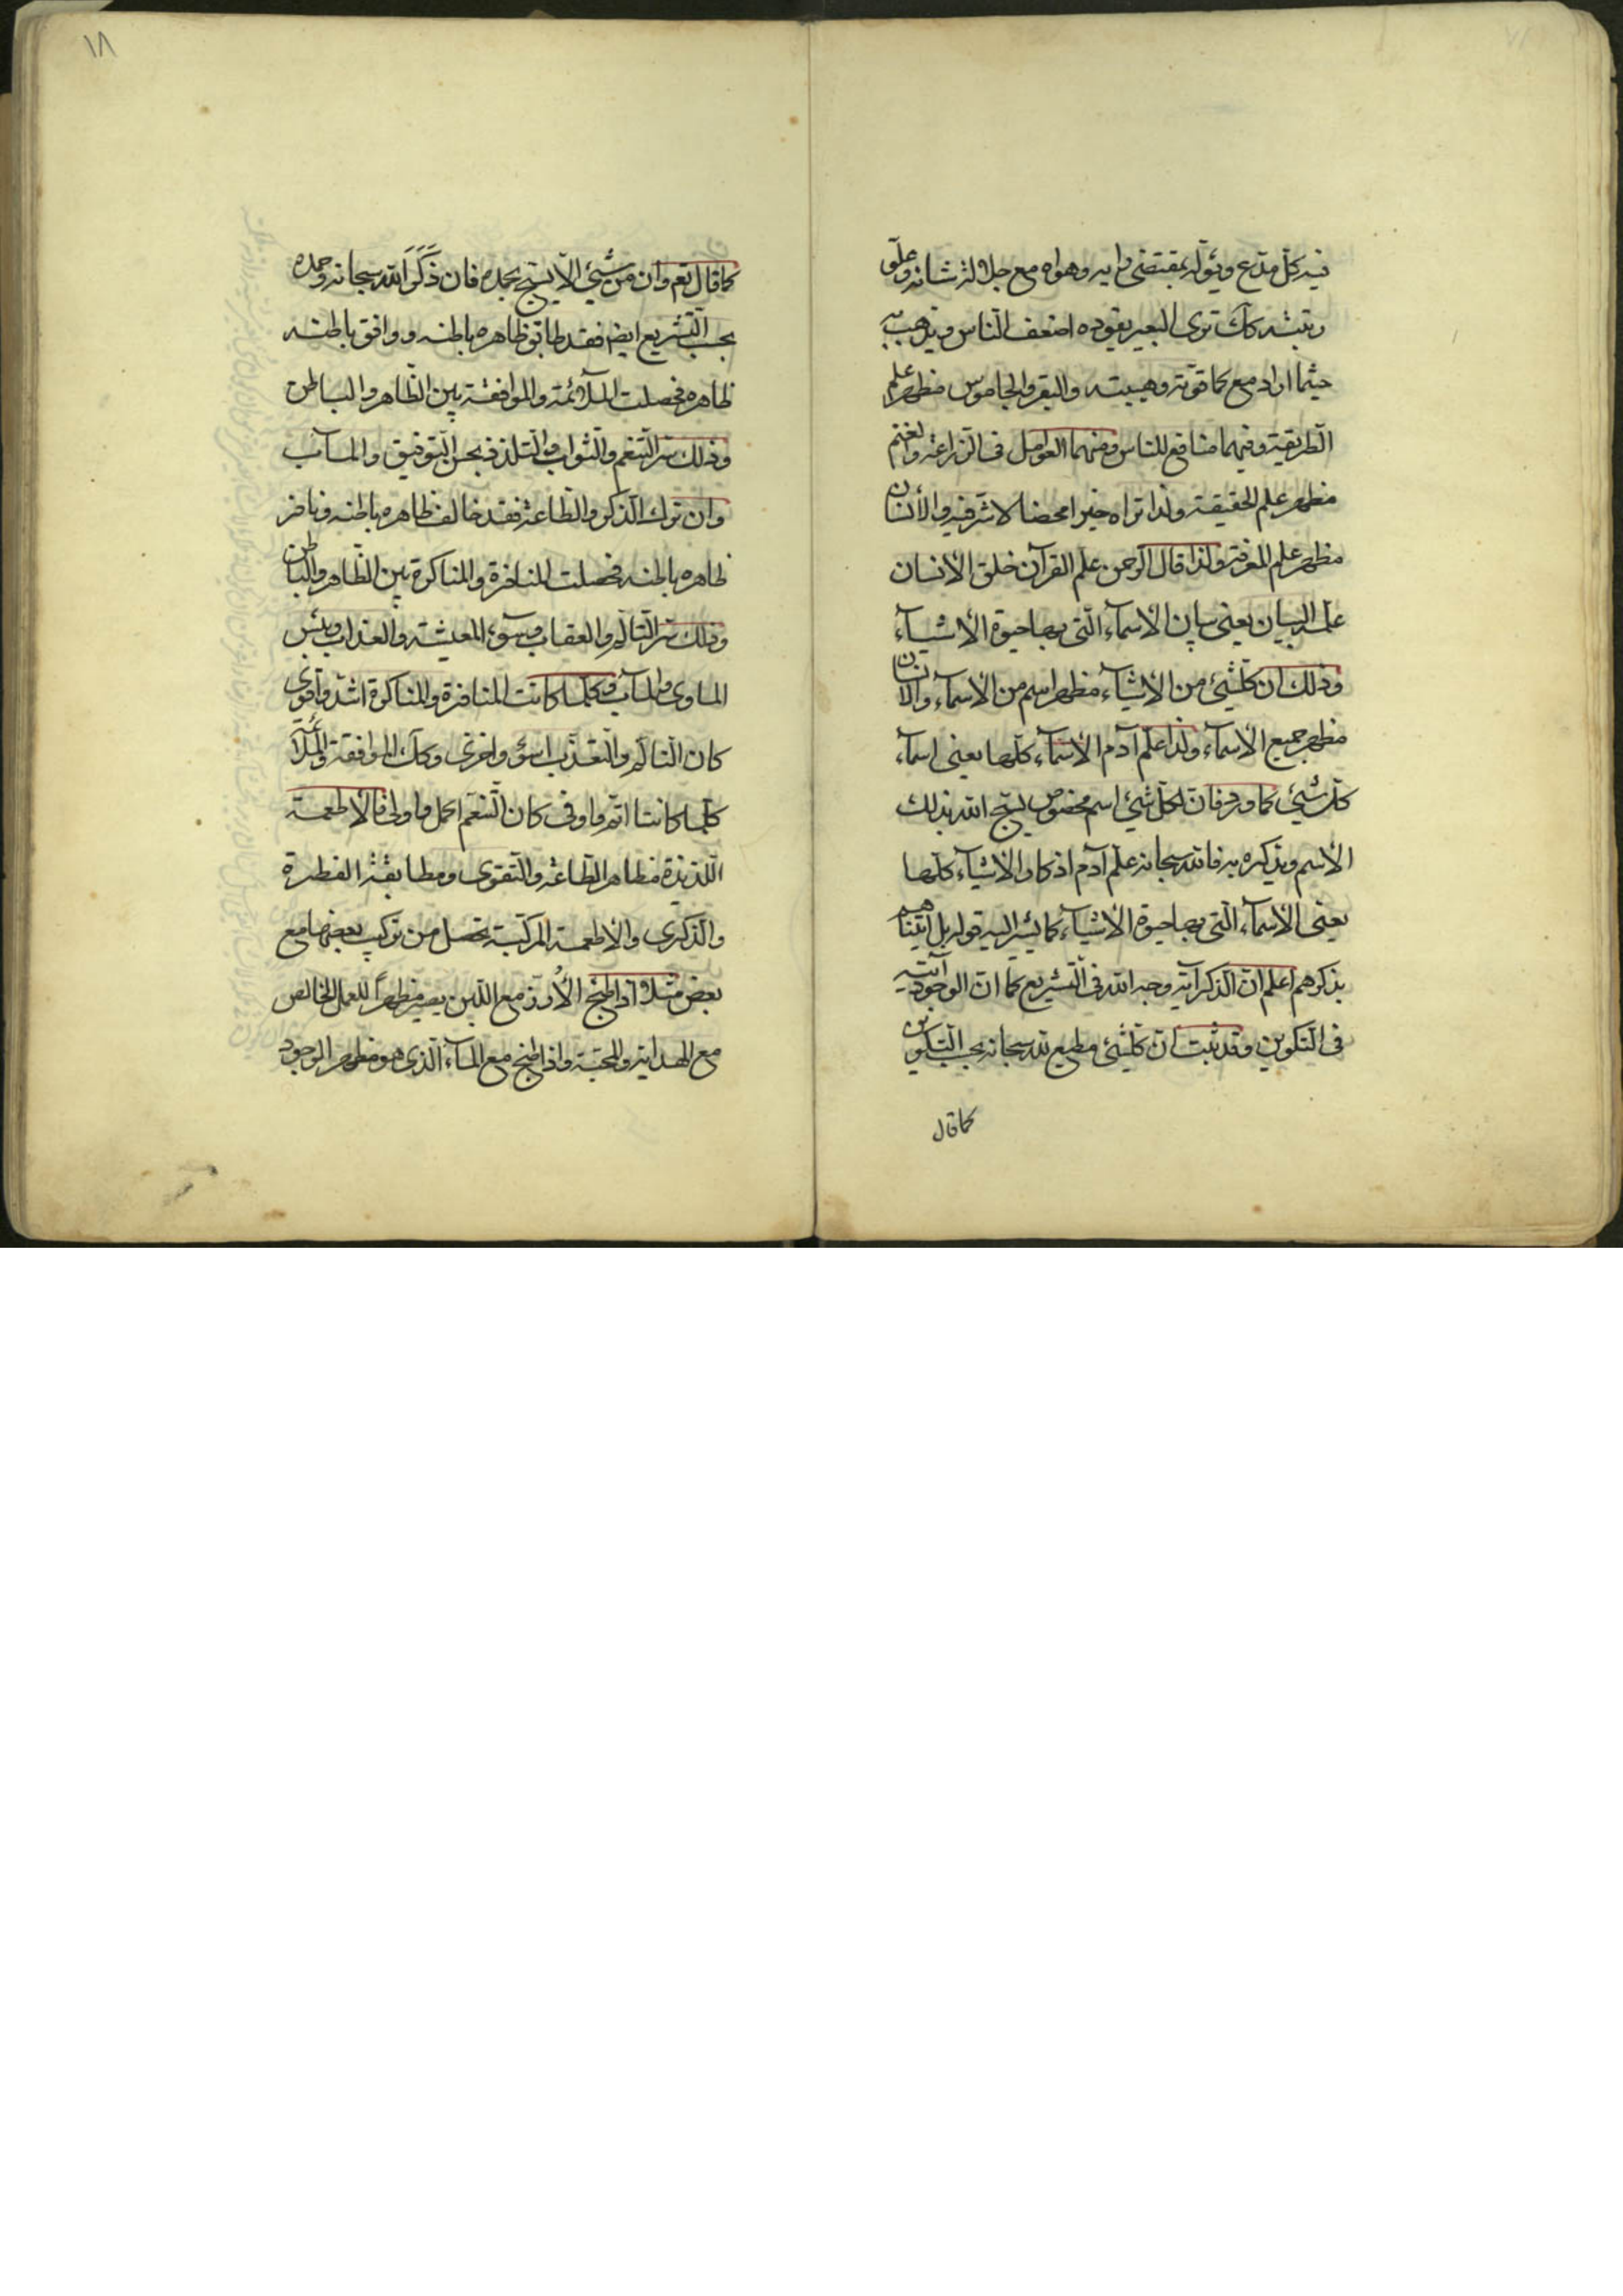 فيه كل مدع ويؤله بمقتضى رايه وهواه مع جلالة شانه وعلو
رتبته كك ترى البعير يقوده اضعف الناس ويذهب به
حيثما اراد مع كما قوته وهيبته والبقر والجاموس مظهر علم
الطريقة وفيهما منافع للناس ومنهما العوامل فى الزراعة والغنم
مظهر علم الحقيقة ولذا تراه خيرا محضا لا شر فيه والأنسان
مظهر علم المعرفة ولذا قال الرحمن علم القرآن خلق الأنسان
علمه البيان يعنى بيان الأسمآء التى بها حيوة الأشيآء
وذلك ان كلشئ من الأشيآء مظهر اسم من الأسمآء والأنسان
مظهر جميع الأسمآء ولذا علم آدم الأسمآء كلها يعنى اسمآء
كل شئ كما ورد فان لكل شئ اسم مخصوص يسبح الله بذلك
الأسم ويذكره به فالله سبحانه علم آدم اذكار الأشيآء كلها
يعنى الأسمآء التى بها حيوة الأشيآء كما يشير اليه قوله بل اتيناهم
بذكرهم اعلم ان الذكر آية وجه الله فى التشريع كما ان الوجود آيته
فى التكوين وقد ثبت ان كلشئ مطيع لله سبحانه بحسب التكوين
كما قال
١٨
كما قال تعم وان من شئ الا يسبح بحمده فان ذَكَرَ الله سبحانه وحمده
بحسب التشريع ايضم فقد طابق ظاهره باطنه ووافق باطنه
ظاهره فحصلت الملائمة والموافقة بين الظاهر والباطن
وذلك سر التنعم والثواب والتلذذ بحسن التوفيق والمآب
وان ترك الذكر والطاعة فقد خالف ظاهره باطنه ونافر
ظاهره باطنه فحصلت المنافرة والمناكرة بين الظاهر والباطن
وذلك سر التألم والعقاب وسوء المعيشة والعذاب وبئس
الماوى والمآب وكلما كانت المنافرة والمناكرة اشد واقوى
كان التالم والتعذب اسوؤ واخزى وكك الموافقة والملآئمة
كلما كانتا اتم واوفى كان التنعم اكمل واولى فالأطعمة
اللذيذة مظاهر الطاعة والتقوى ومطابقة الفطرة
والذكرى والأطعمة المركبة تحصل من تركيب بعضها مع
بعض مثلا اذا طبخ الأُرز مع اللبن يصير مظهراً للعمل الخالص
مع الهداية والمحبة واذا طبخ مع المآء الذى هو مظهر الوجود